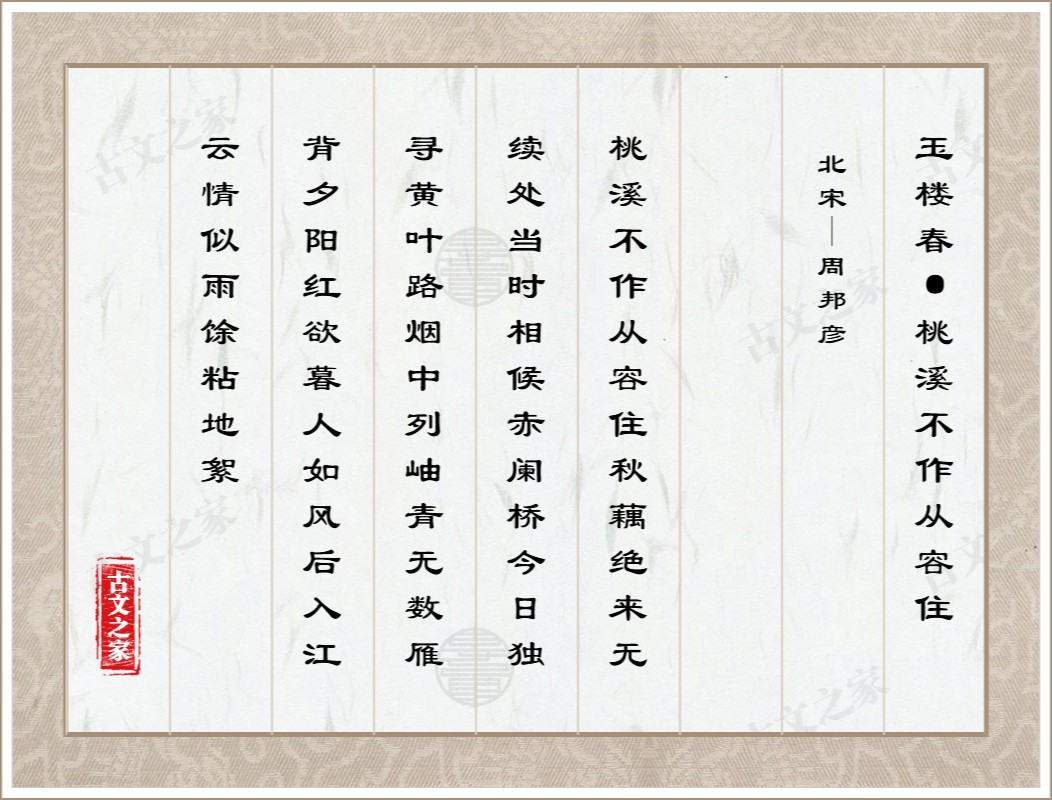 玉楼春●桃溪不作从容住
北宋—周邦彦
桃溪不作从容住秋藕绝来无
续处当时相候赤阑桥今日独
寻黄叶路烟中列岫青无数雁
背夕阳红欲暮人如风后入江
云情似雨馀粘地絮
古文之家
古文之家
古文之家
古文之家
古文之家